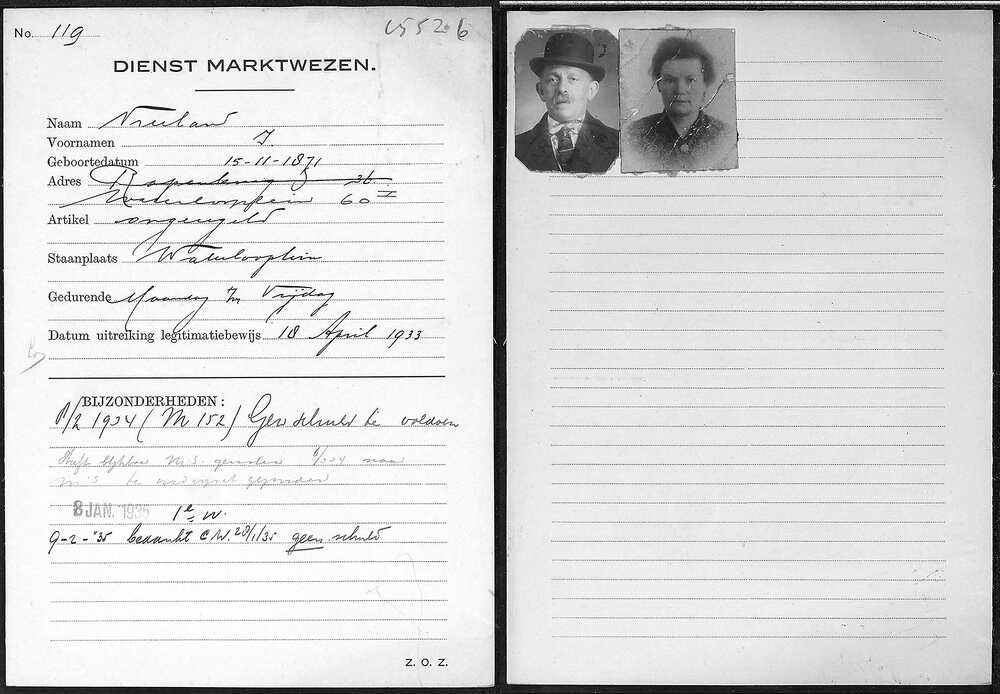 No. 119
DIENST MARKTWEZEN.
Naam Vreeland
Voornamen J.
Geboortedatum 15-11-1871
Adres Rapenburg 36
Waterlooplein 60 I
Artikel ongeregeld
Staanplaats Waterlooplein
Gedurende Maandag t/m Vrijdag
Datum uitreiking legitimatiebewijs 18 April 1933
BIJZONDERHEDEN:
8/2 1934 (M 152) Gew schuld te voldoen
Heeft blijkbaar M.S.
8 JAN. 1935 1e W.
9-2-'35 bedankt C.W. 28/1/35 geen schuld
Z. O. Z.